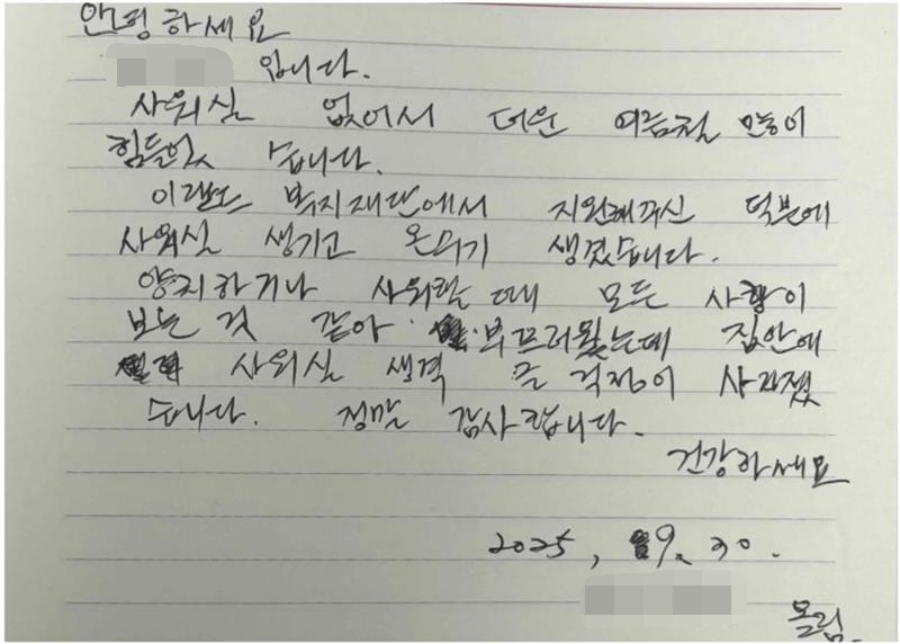 안녕하세요
입니다.
사워실 없어서 더운 여름철 많이
힘들었 습니다.
이랜드 복지재단에서 지원해주신 덕분에
사워실 생기고 온수기 생겼습니다.
양치하거나 사워할 때 모든 사람이
보는 것 같아 부끄러웠는데 집안에
사워실 생겨 큰 걱정이 사라졌
습니다. 정말 감사합니다.
건강하세요
2025, 9. 30.
올림.